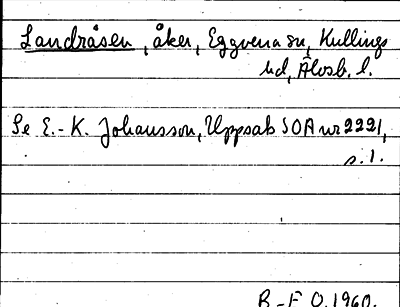 Landråsen, åker, Eggvena sn, Kullings
hd, Älvsb. l.
Se E.-K. Johansson, Uppsats SOA nr 2221,
s. 1.
B-F O. 1960.